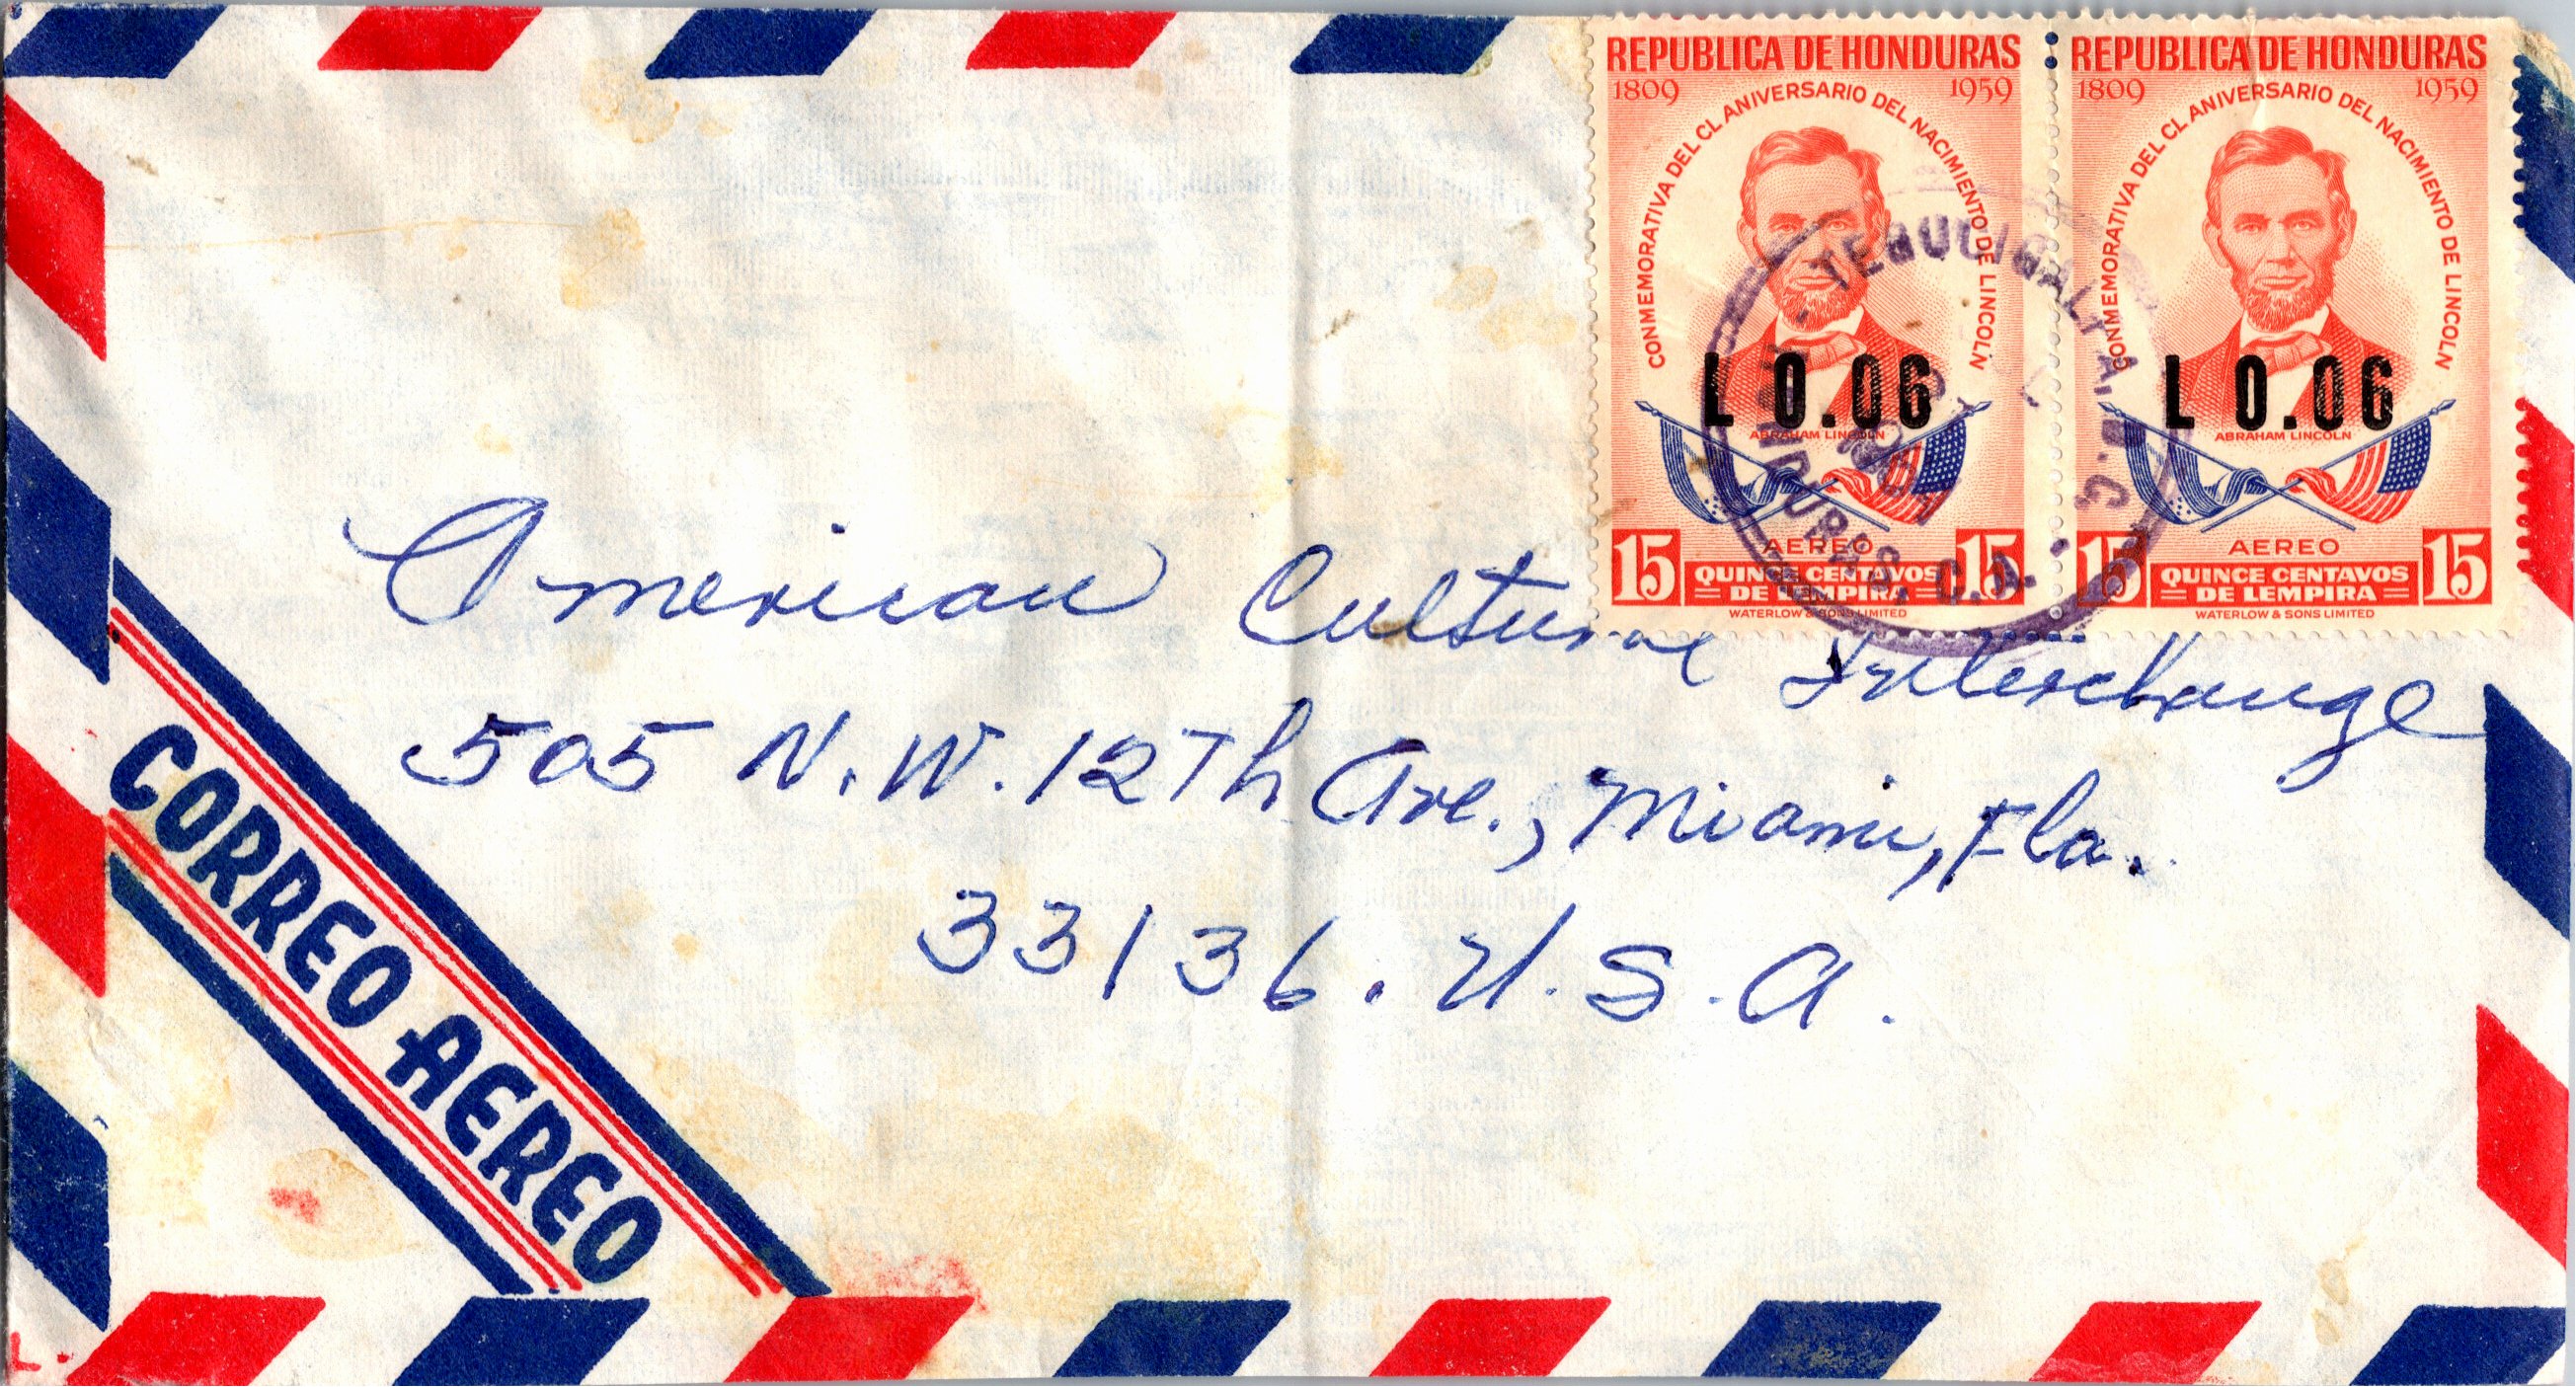 REPUBLICA DE HONDURAS
1809 1959
CONMEMORATIVA DEL CL ANIVERSARIO DEL NACIMIENTO DE LINCOLN
L 0.06
ABRAHAM LINCOLN
AEREO
15 QUINCE CENTAVOS 15
DE LEMPIRA
WATERLOW & SONS LIMITED
REPUBLICA DE HONDURAS
1809 1959
CONMEMORATIVA DEL CL ANIVERSARIO DEL NACIMIENTO DE LINCOLN
L 0.06
ABRAHAM LINCOLN
AEREO
15 QUINCE CENTAVOS 15
DE LEMPIRA
WATERLOW & SONS LIMITED
TEGUCIGALPA, D.C.
HONDURAS, C.A.
American Cultural Interchange
505 N.W. 12Th Ave., Miami, Fla.
33136. U.S.A.
CORREO AEREO